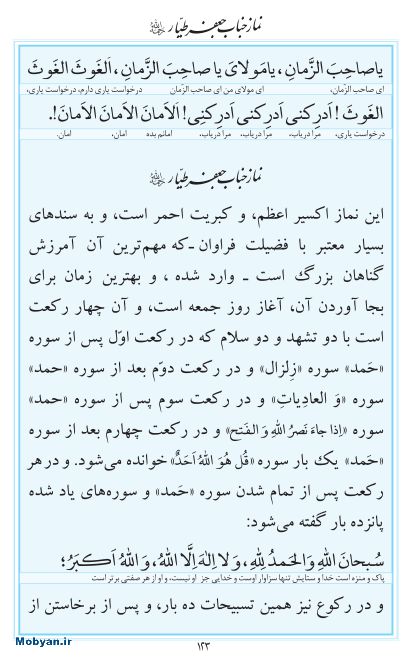 نماز جناب جعفر طیّار
یاصاحِبَ الزَّمانِ، یامَولایَ یا صاحِبَ الزَّمانِ، اَلغَوثَ الغَوثَ
ای صاحب الزّمان، ای مولای من ای صاحب الزّمان درخواست یاری دارم، درخواست یاری،
الغَوثَ! اَدرِکنی اَدرِکنی اَدرِکنی! اَلاَمانَ الاَمانَ الاَمانَ!.
درخواست یاری، مرا دریاب، مرا دریاب، مرا دریاب، امانم بده امان، امان.
نماز جناب جعفر طیّار
این نماز اکسیر اعظم، و کبریت احمر است، و به سندهای
بسیار معتبر با فضیلت فراوان -که مهم‌ترین آن آمرزش
گناهان بزرگ است - وارد شده ، و بهترین زمان برای
بجا آوردن آن، آغاز روز جمعه است، و آن چهار رکعت
است با دو تشهد و دو سلام که در رکعت اوّل پس از سوره
«حَمد» سوره «زِلزال» و در رکعت دوّم بعد از سوره «حمد»
سوره «وَ العادِیاتِ» و در رکعت سوم پس از سوره «حمد»
سوره «اِذا جاءَ نَصرُ اللهِ وَ الفَتح» و در رکعت چهارم بعد از سوره
«حَمد» یک بار سوره «قُل هُوَ اللهُ اَحَدٌ» خوانده می‌شود. و در هر
رکعت پس از تمام شدن سوره «حَمد» و سوره‌های یاد شده
پانزده بار گفته می‌شود:
سُبحانَ اللهِ وَالحَمدُ لِلهِ، وَ لا اِلهَ اِلَّا اللهُ، وَ اللهُ اَکبَرُ؛
پاک و منزه است خدا و ستایش تنها سزاوار اوست و خدایی جز او نیست، و او از هر صفتی برتر است
و در رکوع نیز همین تسبیحات ده بار، و پس از برخاستن از
Mobyan.ir
۱۲۳